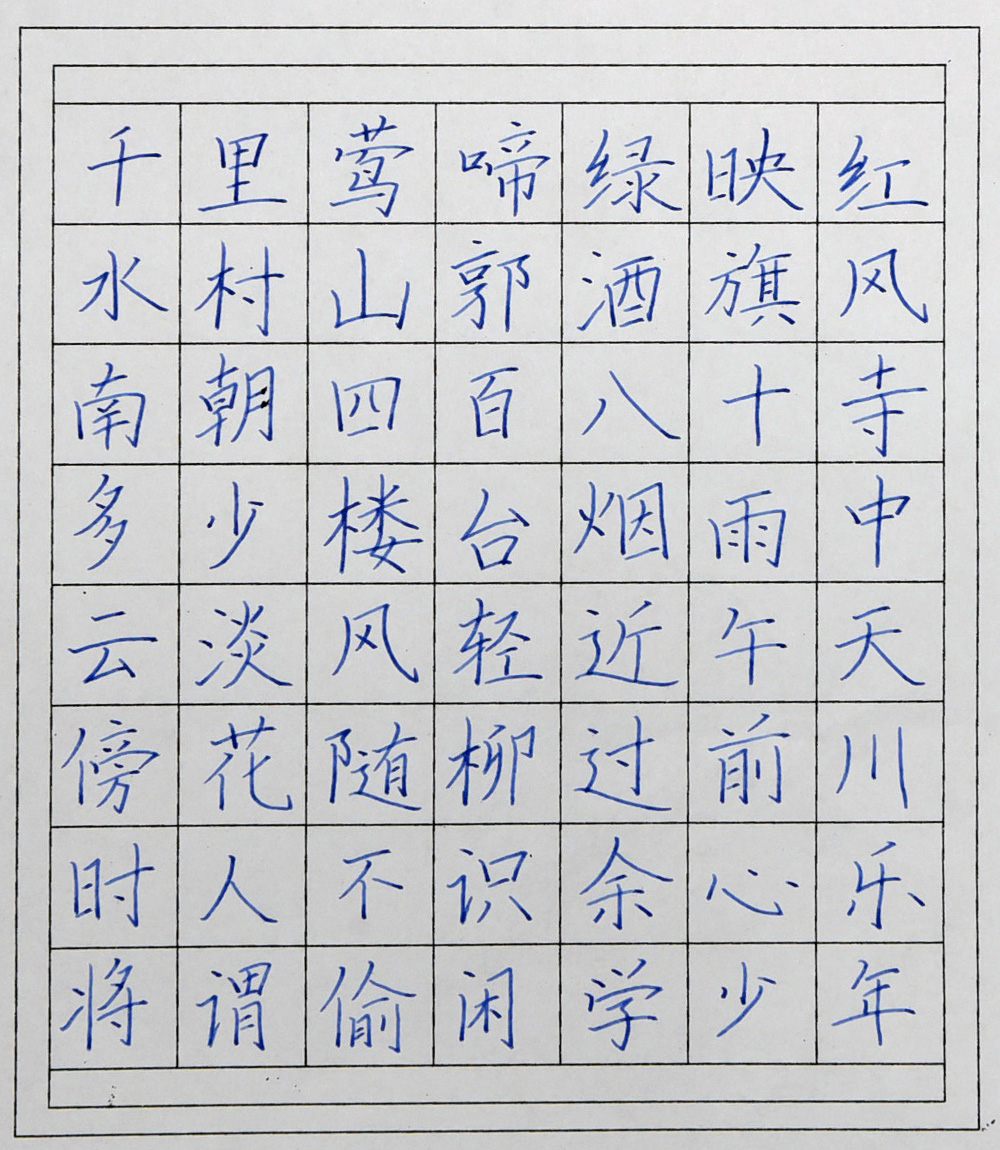 千里莺啼绿映红
水村山郭酒旗风
南朝四百八十寺
多少楼台烟雨中
云淡风轻近午天
傍花随柳过前川
时人不识余心乐
将谓偷闲学少年